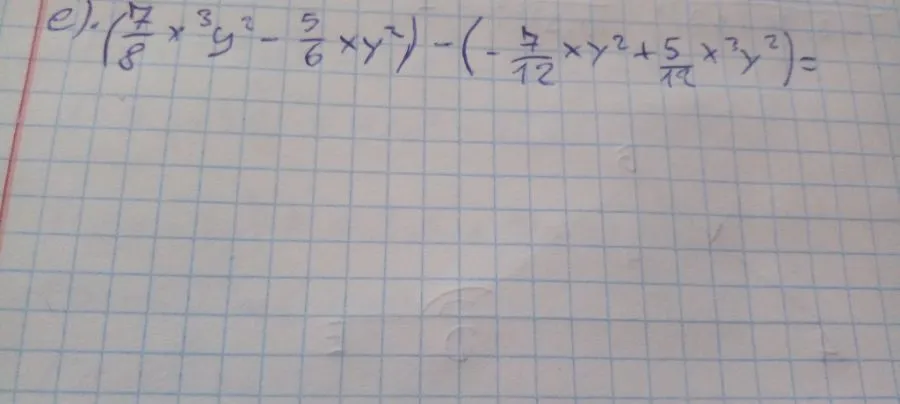 е). (7/8 x³y² - 5/6 xy²) - (- 7/12 xy² + 5/12 x³y²) =